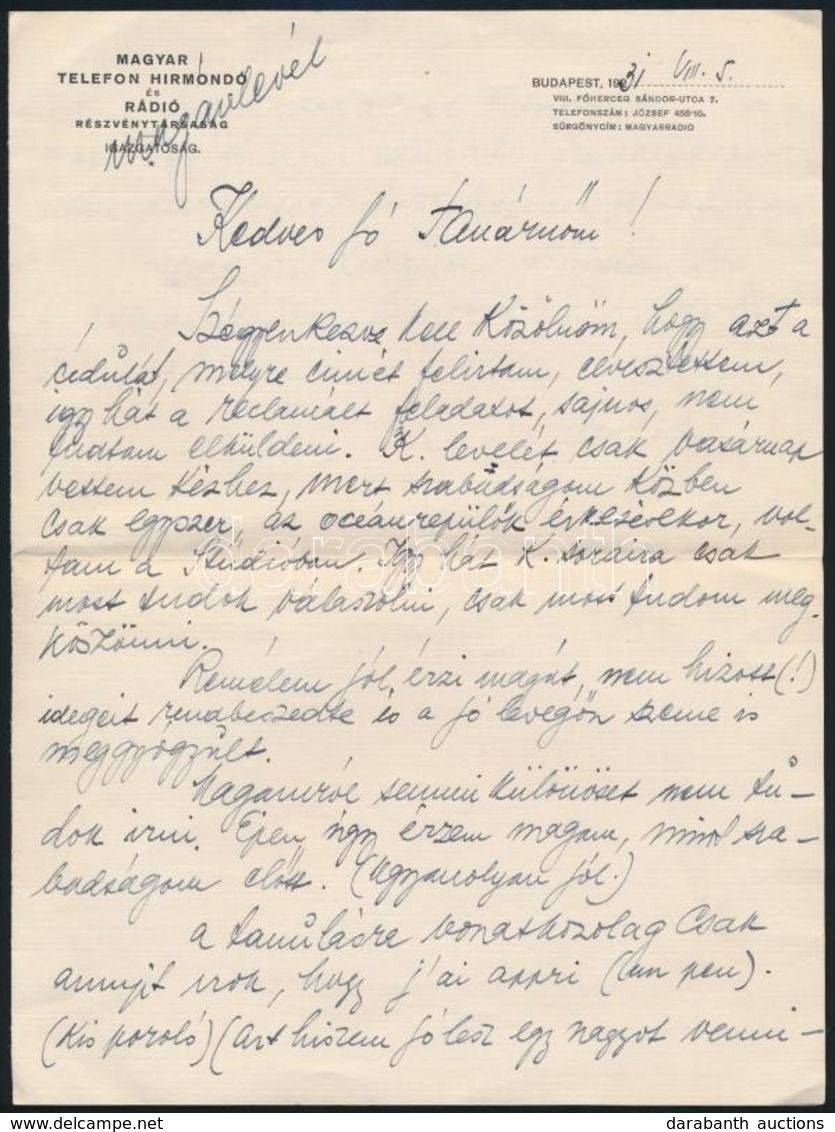 MAGYAR
TELEFON HIRMONDÓ
ÉS
RÁDIÓ
RÉSZVÉNYTÁRSASÁG
IGAZGATÓSÁG.
*
magánlevél
BUDAPEST, 1931 VIII. 5.
VIII. FŐHERCEG SÁNDOR-UTCA 7.
TELEFONSZÁM: JÓZSEF 455-10.
SÜRGÖNYCIM: MAGYARRADIO
Kedves jó Tanárnőm!
Szégyenkezve kell közölnöm, hogy azt a
cédulát, melyre cimét felirtam, elvesztettem,
igy hát a reclamált feladatot, sajnos, nem
tudtam elküldeni. K. levelét csak vasárnap
vettem kézhez, mert szabadságom közben
csak egyszer, az oceánrepülők érkezésekor, vol-
tam a Studióban. Igy hát K. soraira csak
most tudok válaszolni, csak most tudom meg-
köszönni.
Remélem jól érzi magát, nem hizott (!)
idegeit rendbeszedte és a jó levegőn szeme is
meggyógyult.
Magamról semmi különöset nem tu-
dok irni. Épen úgy érzem magam, mint sza-
badságom előtt. (Ugyanolyan jól.)
A tanulásra vonatkozolag csak
annyit irok, hogy j'ai appri (un peu).
(Kis poroló) (Azt hiszem jó lesz egy nagyot venni-
darabanth
www.darabanth.com
darabanth auctions